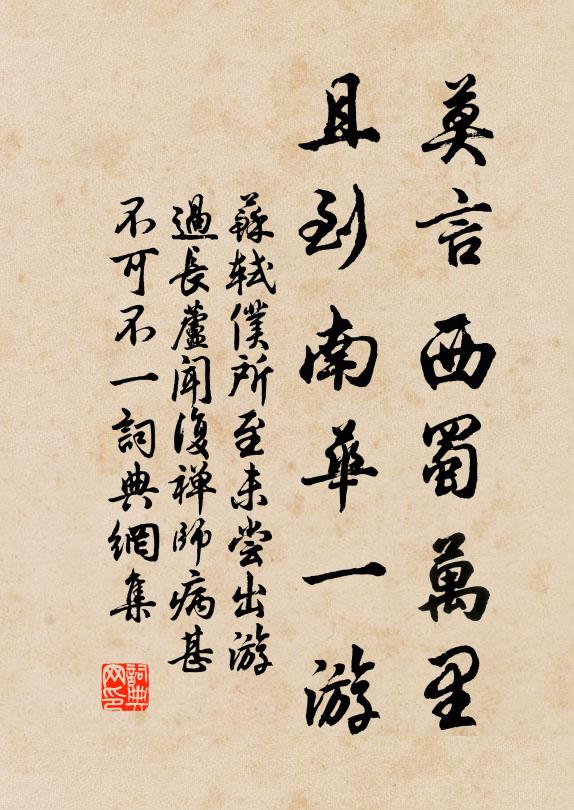 莫言西蜀萬里
且到南華一游
蘇軾僕所至未嘗出游
過長蘆聞復禅師病甚
不可不一詞典網集
詞典
网印